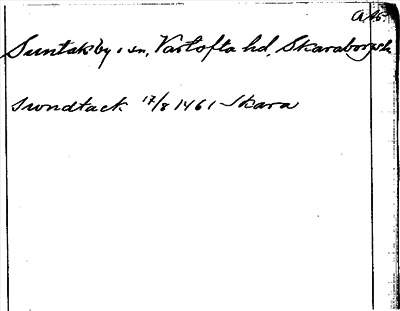 Suntak by, sn, Vartofta hd, Skaraborgs
Swndtack 17/8 1461 Skara